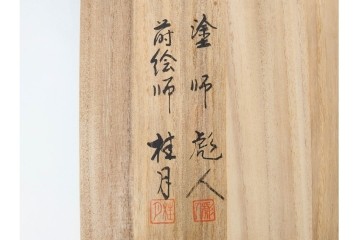 塗師 彪人
蒔絵師 桂月